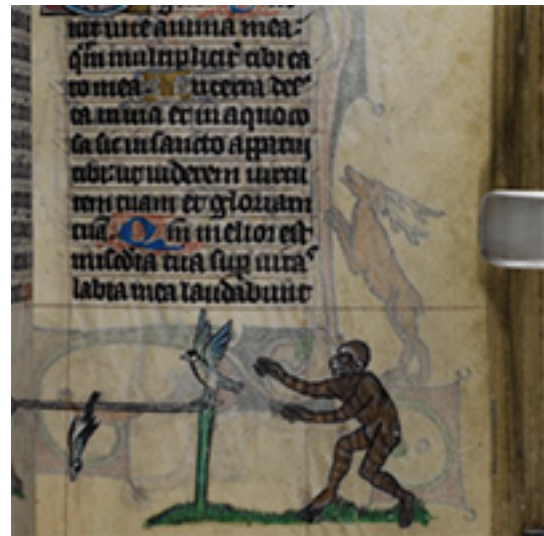 iuit in te anima mea:
q̄m multiplicit᷑ tibi ca
ro mea. In terra deſ
ta inuia et inaquo
sa sic in sancto apparui
tibi: ut uiderem uirtu
tem tuam et gloriam
tuā. Qm̄ melior est
miſedia tua sup uitas
labia mea laudabunt